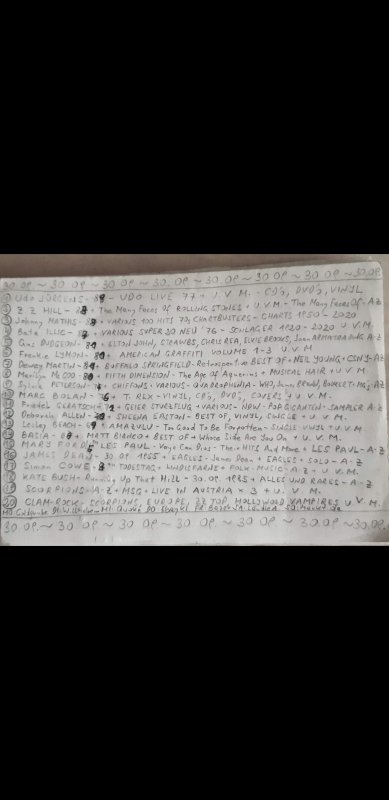 30.09 ~ 30.09 ~ 30.09 ~ 30.09 ~ 30.09 ~ 30.09 ~ 30.09 ~ 30.09
① Udo JÜRGENS - - UDO LIVE 77 + U.V.M. - CD's, DVD's, VINYL
② Z Z HILL - + The Many Faces Of ROLLING STONES + U.V.M - The Many Faces Of - A-Z
③ Johnny MATHIS - + VARIOUS 100 HITS 70s CHARTBUSTERS - CHARTS 1950 - 2020
④ Bata ILLIC - + VARIOUS SUPER 30 NEU '76 - SCHLAGER 1920 - 2020 U.V.M.
⑤ Gus DUDGEON - + ELTON JOHN, STRAWBS, CHRIS REA, ELKIE BROOKS, Joan ARMATRADING A-Z
⑥ Frankie LYMON - + AMERICAN GRAFFITI VOLUME 1-3 U.V.M
⑦ Dewey MARTIN - + BUFFALO SPRINGFIELD - Retrospective BEST OF + NEIL YOUNG + CSNY - A-Z
⑧ Marilyn McCOO - + FIFTH DIMENSION - The Age Of Aquarius + MUSICAL HAIR + U.V.M
⑨ Sylvia PETERSON - + CHIFFONS + VARIOUS - QUADROPHENIA - WHO, James BROWN, A-Z
⑩ MARC BOLAN - + T. REX - VINYL, CD's, DVD's, COVERS + U.V.M.
⑪ Friedel GERATSCH - + GEIER STURZFLUG + VARIOUS - NDW - POP GIGANTEN - SAMPLER A-Z
⑫ Deborah ALLEN - + SHEENA EASTON - BEST OF, VINYL, SINGLE + U.V.M.
⑬ Lesley BEACH - + AMAZULU - Too Good To Be Forgotten - SINGLE VINYL + U.V.M
⑭ BASIA - + MATT BIANCO + BEST OF + Whose Side Are You On + U.V.M.
⑮ MARY FORD + LES PAUL - Vaya Con Dios - The Hits And More + LES PAUL - A-Z
⑯ JAMES DEAN - 30.09 1955 + EAGLES - James Dean + EAGLES + SOLO - A-Z
⑰ Simon COWE - TODESTAG + LINDISFARNE + FOLK-MUSIC - A-Z + U.V.M.
⑱ KATE BUSH - Running Up That Hill - 30.09 1985 + ALLES UND RARES - A-Z
⑲ SCORPIONS - A-Z + MSG + LIVE IN AUSTRIA × 3 + U.V.M.
⑳ GLAM-ROCK - SCORPIONS, EUROPE, ZZ TOP, HOLLYWOOD VAMPIRES U.V.M.
30.09. ~ 30.09 ~ 30.09 ~ 30.09 ~ 30.09 ~ 30.09 ~ 30.09 ~ 30.09.